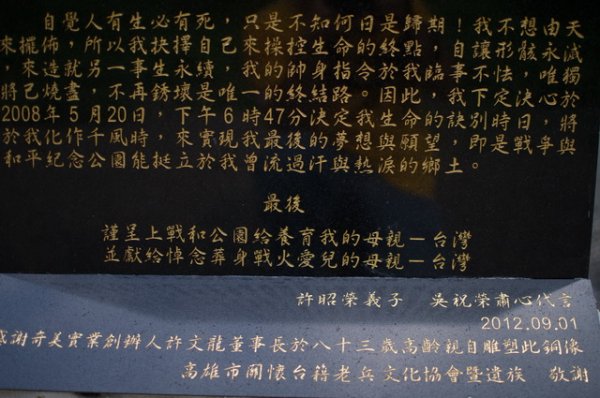 自覺人有生必有死，只是不知何日是歸期！我不想由天
來擺佈，所以我抉擇自己來操控生命的終點，自讓形骸永滅
，來造就另一事生永續，我的帥身指令於我臨事不怯，唯獨
將己燒盡，不再銹壞是唯一的終結路。因此，我下定決心於
2008年5月20日，下午6時47分決定我生命的訣別時日，將
於我化作千風時，來實現我最後的夢想與願望，即是戰爭與
和平紀念公園能挺立於我曾流過汗與熱淚的鄉土。
最後
謹呈上戰和公園給養育我的母親－台灣
並獻給悼念葬身戰火愛兒的母親－台灣
許昭榮義子 吳祝榮肅心代言
2012.09.01
感謝奇美實業創辦人許文龍董事長於八十三歲高齡親自雕塑此銅像
高雄市關懷台籍老兵文化協會暨遺族 敬謝